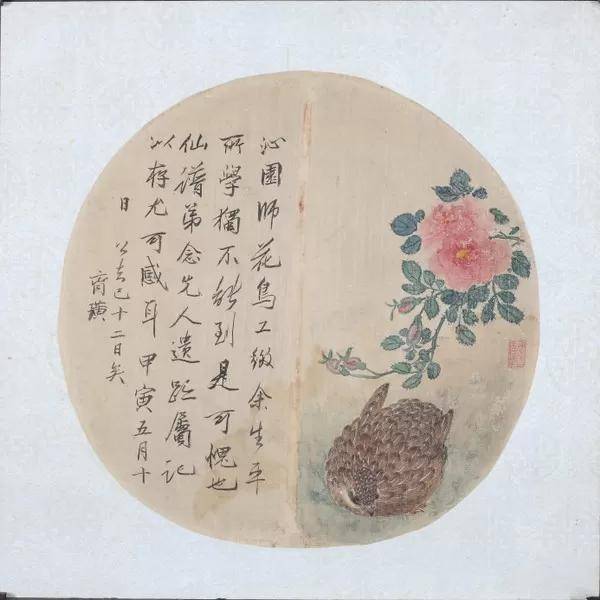 沁園師花鳥工緻余生平
所學獨不能到是可愧也
仙譜弟念先人遺跡屬記
以存尤可感耳甲寅五月十
日 公去已十二日矣
齊璜